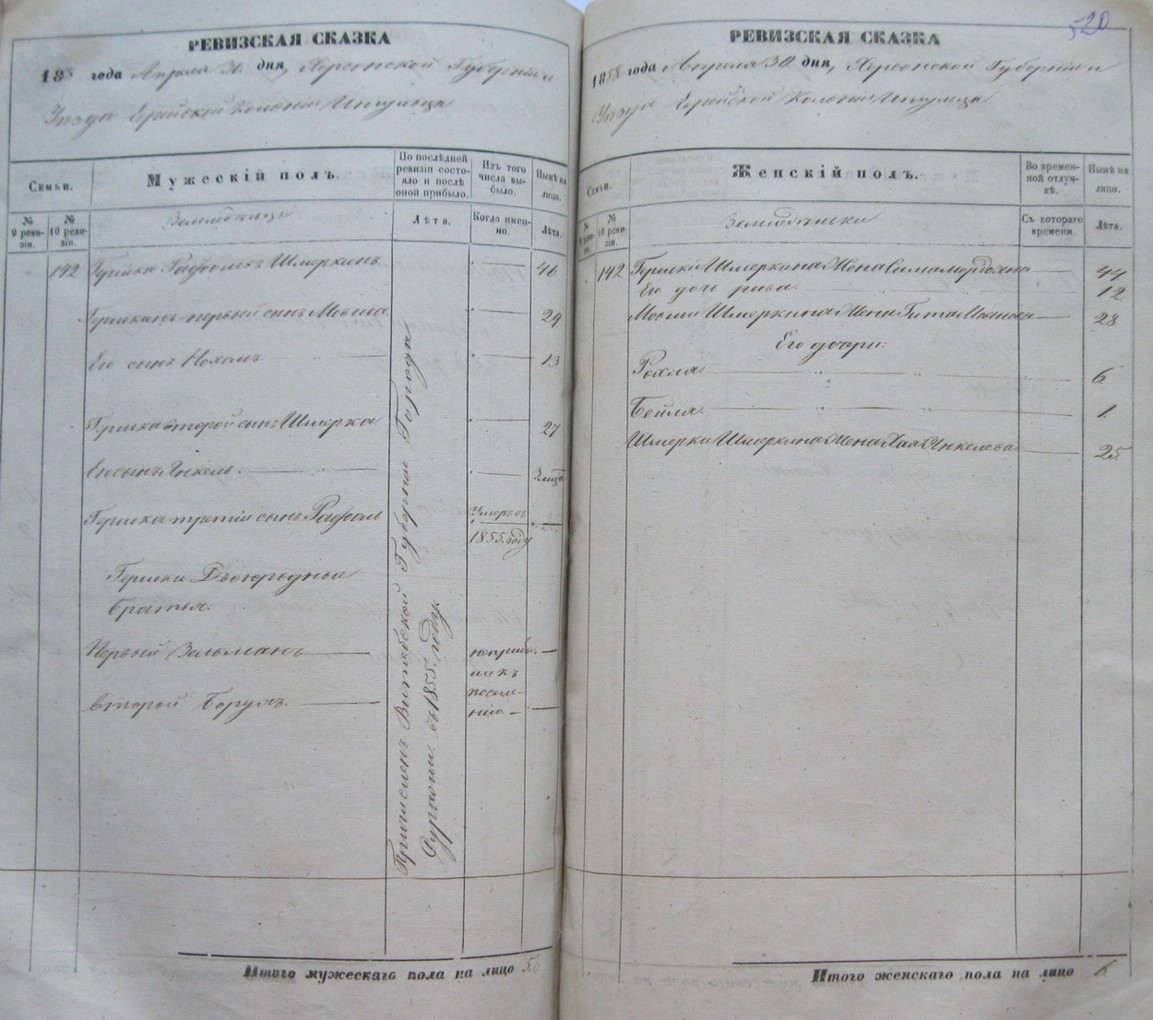 РЕВИЗСКАЯ СКАЗКА
1858 года Апреля 30 дня, Херсонской Губерніи и
Уезда Еврейской Колоніи Ингульца
Семьи.
Мужескій полъ.
По послѣдней ревизіи состояло и послѣ оной прибыло.
Изъ того числа выбыло.
Нынѣ на лицо.
№ 9 ревизіи.
№ 10 ревизіи.
Земледѣльцы
Лѣта.
Когда именно.
Лѣта.
142 Рафоилъ Шмеркинъ 46
первый сынъ Мовша 29
Его сынъ Нохомъ 13
Гершка второй сынъ Шмерка 27
Его сынъ Янкель
Гершка третій сынъ Рафоль Умеръ въ 1855 году
Гершки Двоюродные
братья.
Первый Зельманъ
второй Борухъ.
Причисленъ Витебской Губерніи Города
въ 1855 году.
Итого мужескаго пола на лицо
520
РЕВИЗСКАЯ СКАЗКА
1858 года Апреля 30 дня, Херсонской Губерніи и
Уезда Еврейской Колоніи Ингульца
Семьи.
Женскій полъ.
Во временной отлучкѣ.
Нынѣ на лицо.
№ 9 ревизіи.
№ 10 ревизіи.
Земледѣльки
Съ котораго времени.
Лѣта.
142 Гершки Шмеркина Жена Сима 44
Его дочь рива. 12
Мовши Шмеркина Жена Гита 28
Его дочри:
Рохля 6
Бейля. 1
Шмерки Шмеркина Жена Хая Янкелева 25
Итого женскаго пола на лицо 6